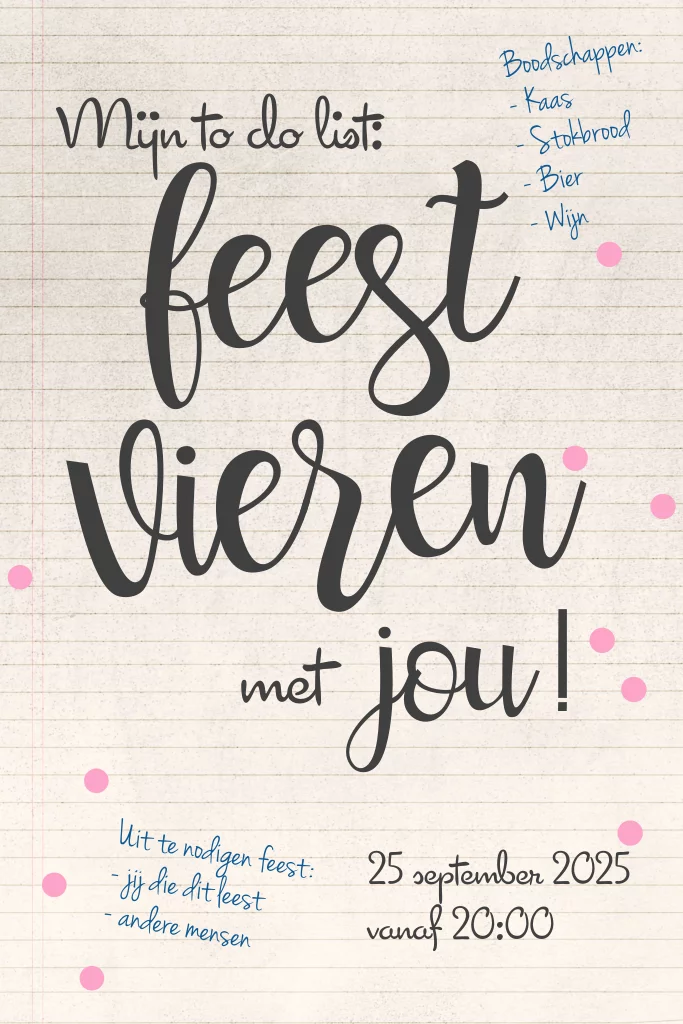 Boodschappen:
- Kaas
- Stokbrood
- Bier
- Wijn
Mijn to do list:
feest
vieren
met jou!
Uit te nodigen feest:
- jij die dit leest
- andere mensen
25 september 2025
vanaf 20:00